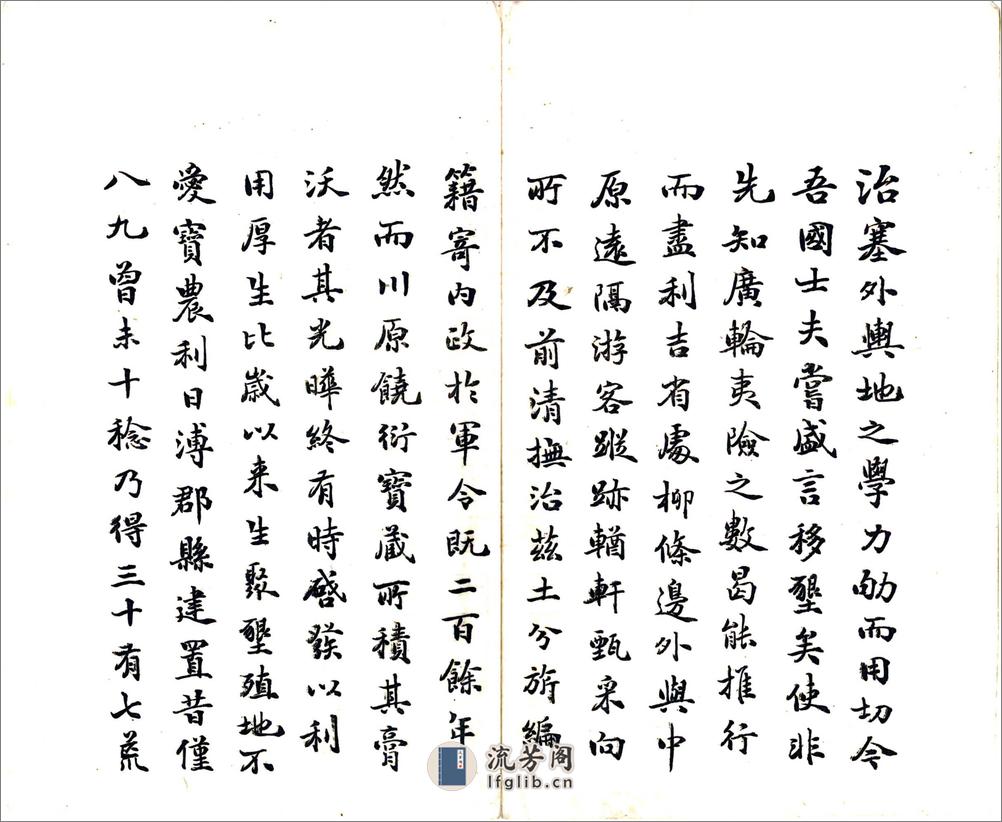 治塞外輿地之學力劬而用切今
吾國士夫嘗盛言移墾矣使非
先知廣輪夷險之數曷能推行
而盡利吉省處柳條邊外與中
原遠隔游客蹤跡輶軒甄采向
所不及前清撫治茲土分旂編
籍寄內政於軍令既二百餘年
然而川原饒衍寶藏所積其膏
沃者其光曄終有時啓發以利
用厚生比歲以来生聚墾殖地不
愛寶農利日溥郡縣建置昔僅
八九曾未十稔乃得三十有七荒
流芳阁
lfglib.cn